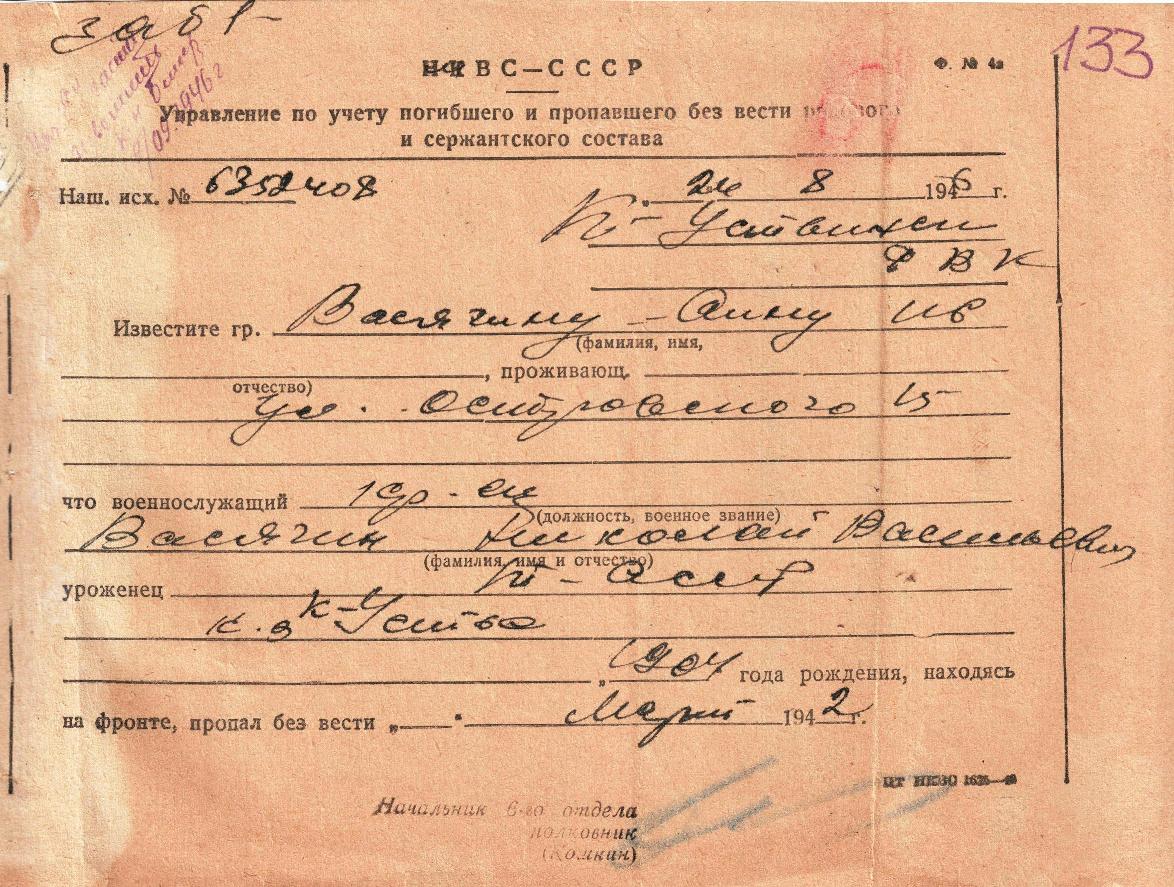 133
НКВС—СССР
Ф. № 4а
Управление по учету погибшего и пропавшего без вести рядового
и сержантского состава
Наш. исх. № 6352408
„ 24 8 1946 г.
К-Уствинск
РВК
Известите гр. Васячину - Анну Ив
(фамилия, имя,
, проживающ.
отчество)
ул. Островского 15
что военнослужащий
(должность, военное звание)
Васячин Николай Васильевич
(фамилия, имя и отчество)
уроженец
К-Устье
„ 1904 года рождения, находясь
на фронте, пропал без вести „ " Март 1942 г.
ЦТ НКВО
Начальник 6-го отдела
полковник
(Комкин)